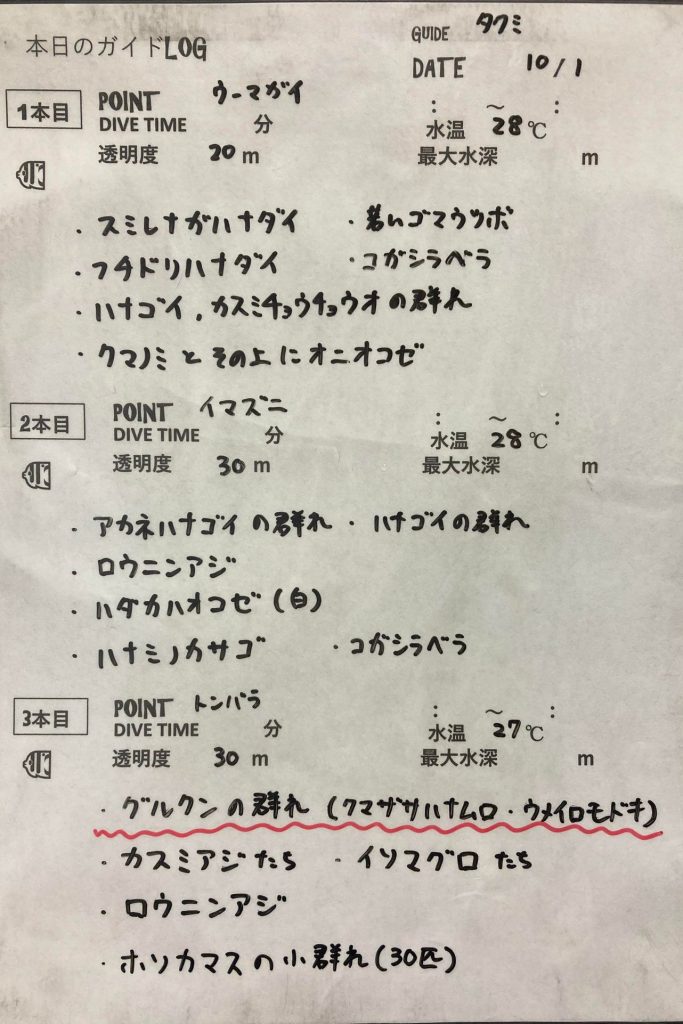 本日のガイドLOG
GUIDE タクミ
DATE 10/1
1本目 POINT ウーマガイ : ～ :
DIVE TIME 分 水温 28℃
透明度 20m 最大水深 m
・スミレナガハナダイ ・若いゴマウツボ
・フチドリハナダイ ・コガシラベラ
・ハナゴイ,カスミチョウチョウオの群れ
・クマノミとその上にオニオコゼ
2本目 POINT イマズニ : ～ :
DIVE TIME 分 水温 28℃
透明度 30m 最大水深 m
・アカネハナゴイの群れ ・ハナゴイの群れ
・ロウニンアジ
・ハダカハオコゼ(白)
・ハナミノカサゴ ・コガシラベラ
3本目 POINT トンバラ : ～ :
DIVE TIME 分 水温 27℃
透明度 30m 最大水深 m
・グルクンの群れ(クマザサハナムロ・ウメイロモドキ)
・カスミアジたち ・イソマグロたち
・ロウニンアジ
・ホソカマスの小群れ(30匹)